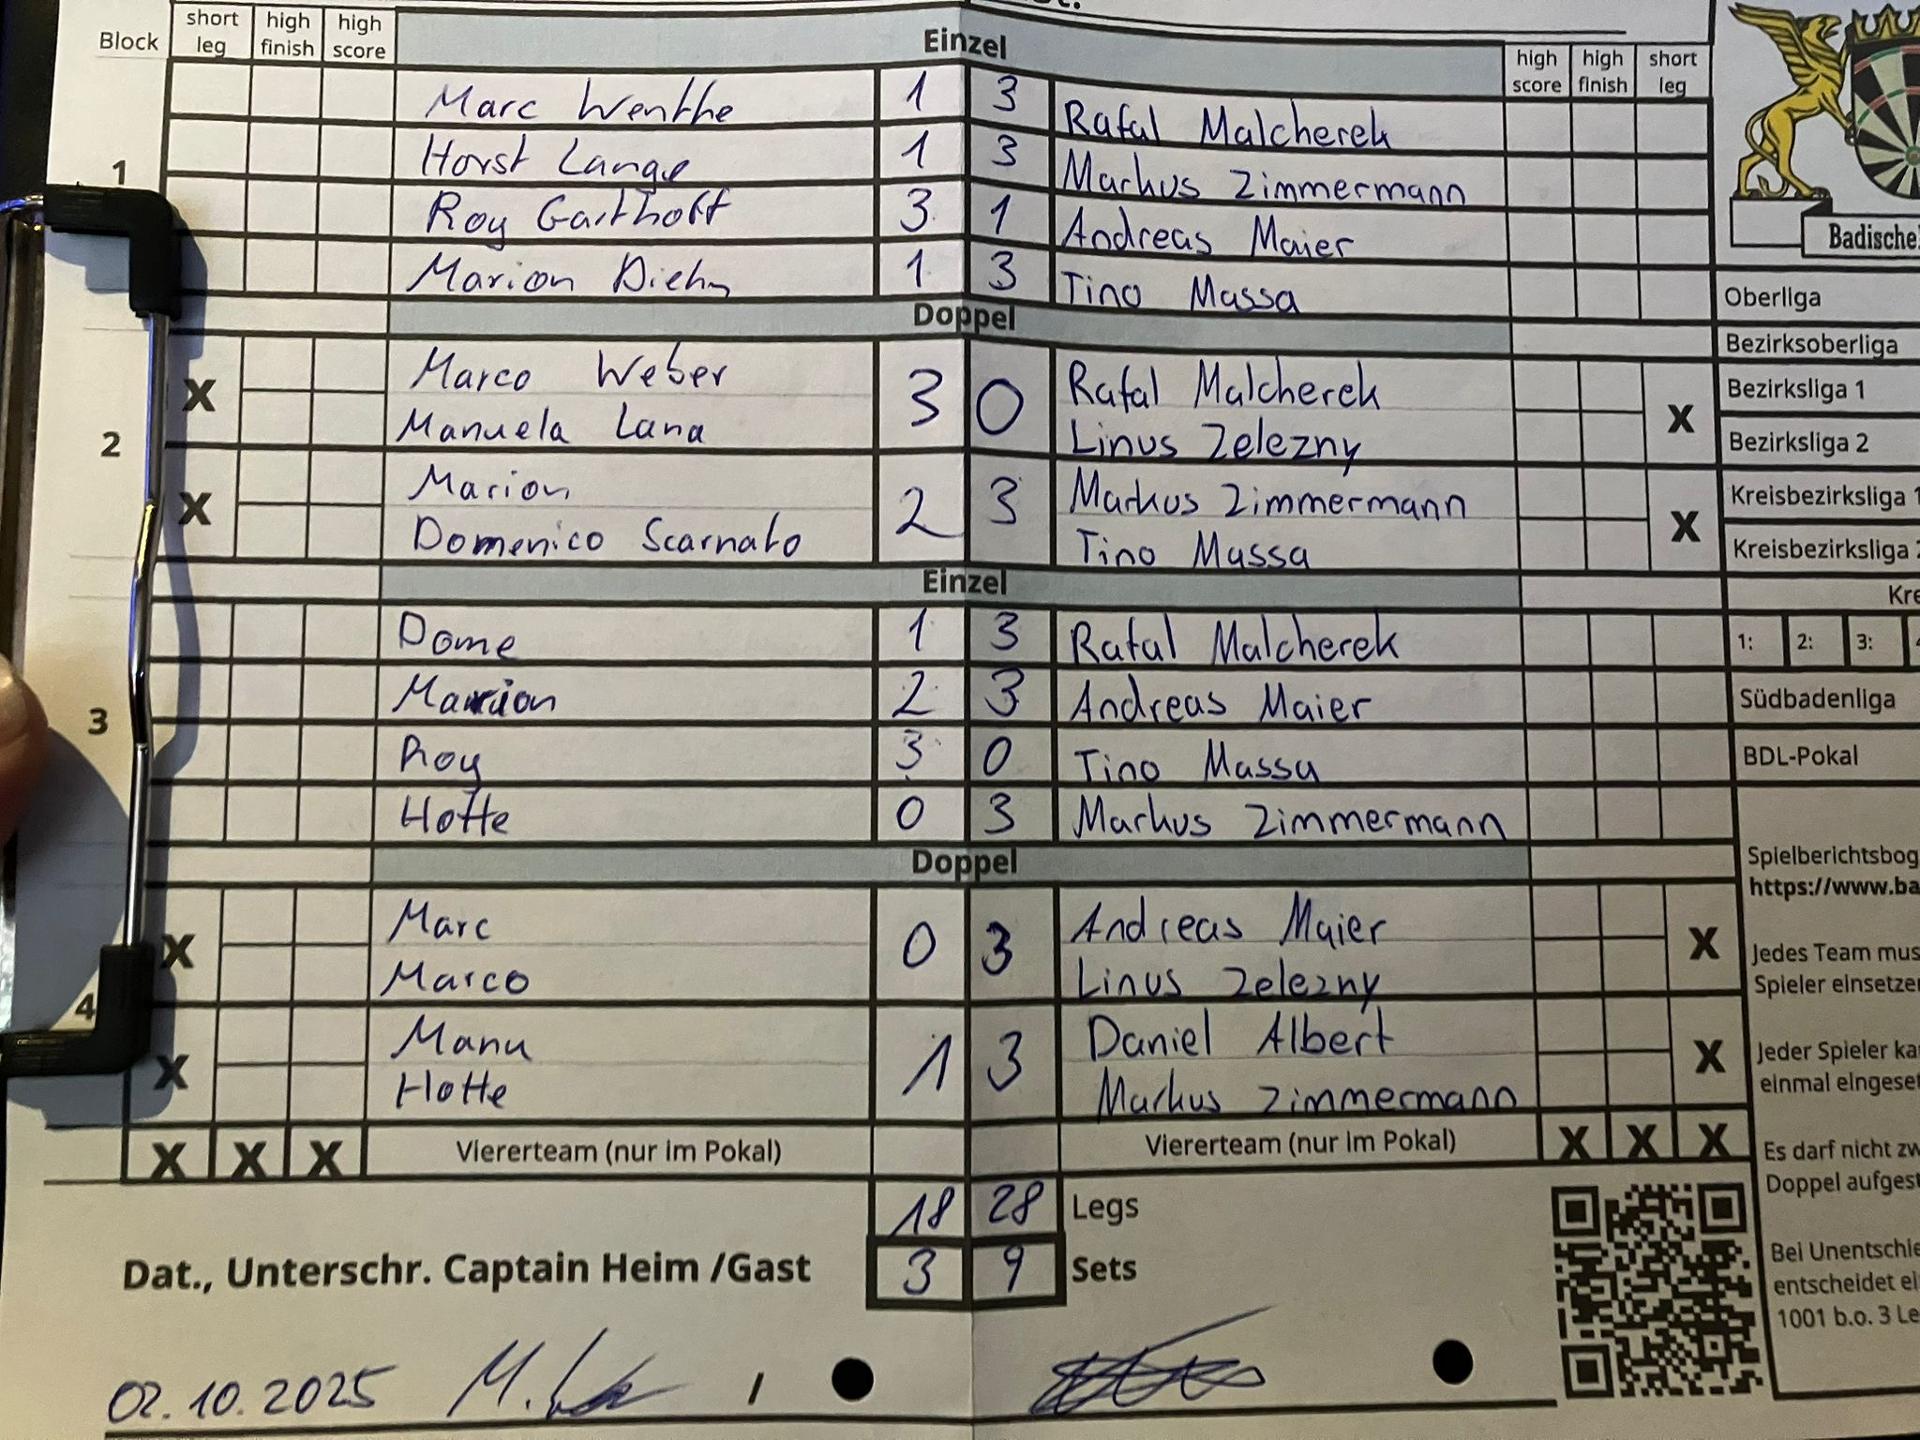 Block short leg high finish high score Einzel high score high finish short leg
1
Marc Wenthe 1 3 Rafal Malcherek
Horst Lange 1 3 Markus Zimmermann
Roy Garthoff 3 1 Andreas Maier
Marion Diehm 1 3 Tino Massa
Doppel
2
X Marco Weber 3 0 Rafal Malcherek X
Manuela Lana Linus Zelezny
X Marion 2 3 Markus Zimmermann X
Domenico Scarnato Tino Massa
Einzel
3
Dome 1 3 Rafal Malcherek
Marion 2 3 Andreas Maier
Roy 3 0 Tino Massa
Hotte 0 3 Markus Zimmermann
Doppel
4
X Marc 0 3 Andreas Maier X
Marco Linus Zelezny
X Manu 1 3 Daniel Albert X
Hotte Markus Zimmermann
X X X Viererteam (nur im Pokal) Viererteam (nur im Pokal) X X X
18 28 Legs
Dat., Unterschr. Captain Heim /Gast 3 9 Sets
02.10.2025 /
Badische
Oberliga
Bezirksoberliga
Bezirksliga 1
Bezirksliga 2
Kreisbezirksliga 1
Kreisbezirksliga 2
Kre
1: 2: 3: 4
Südbadenliga
BDL-Pokal
Spielberichtsbog
https://www.ba
Jedes Team mus
Spieler einsetzen
Jeder Spieler ka
einmal eingeset
Es darf nicht zw
Doppel aufgest
Bei Unentschie
entscheidet ei
1001 b.o. 3 Le